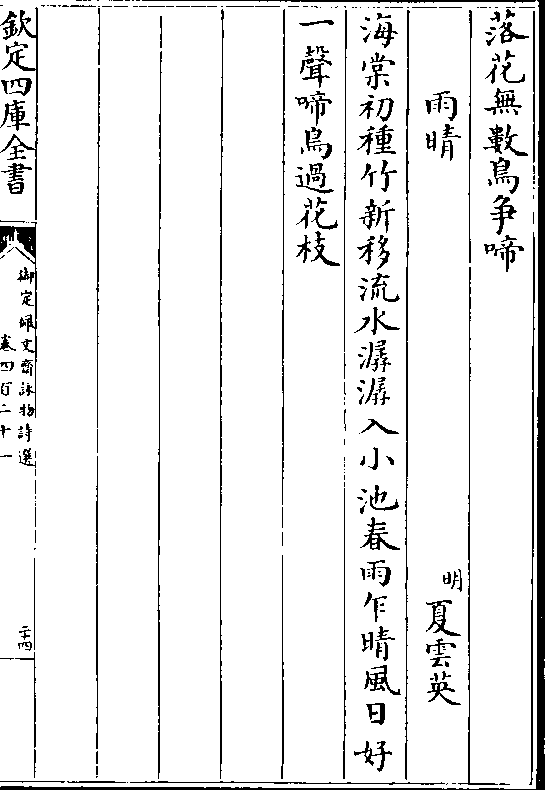 落花無數鳥争啼
雨晴
明
夏雲英
海棠初種竹新移流水潺潺入小池春雨乍晴風日好
一聲啼鳥過花枝
欽定四庫全書
御定佩文齋詠物詩選
卷四百二十一
二十四